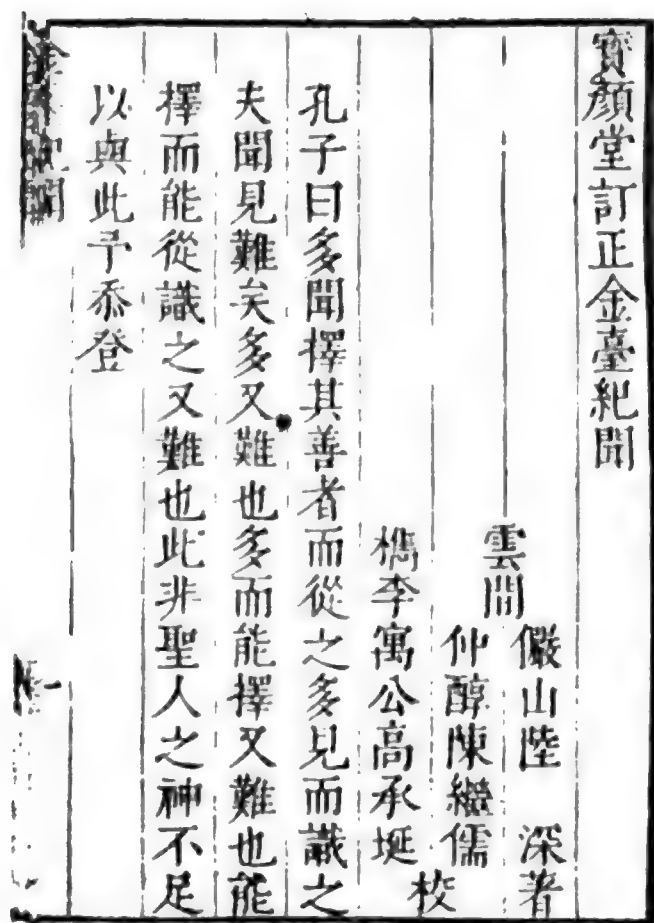 寶顏堂訂正金臺紀聞
雲間
儼山陸　深著
仲醇陳繼儒
檇李寓公高承埏
校
孔子曰多聞擇其善者而從之多見而識之
夫聞見難矣多又難也多而能擇又難也能
擇而能從識之又難也此非聖人之神不足
以與此予忝登